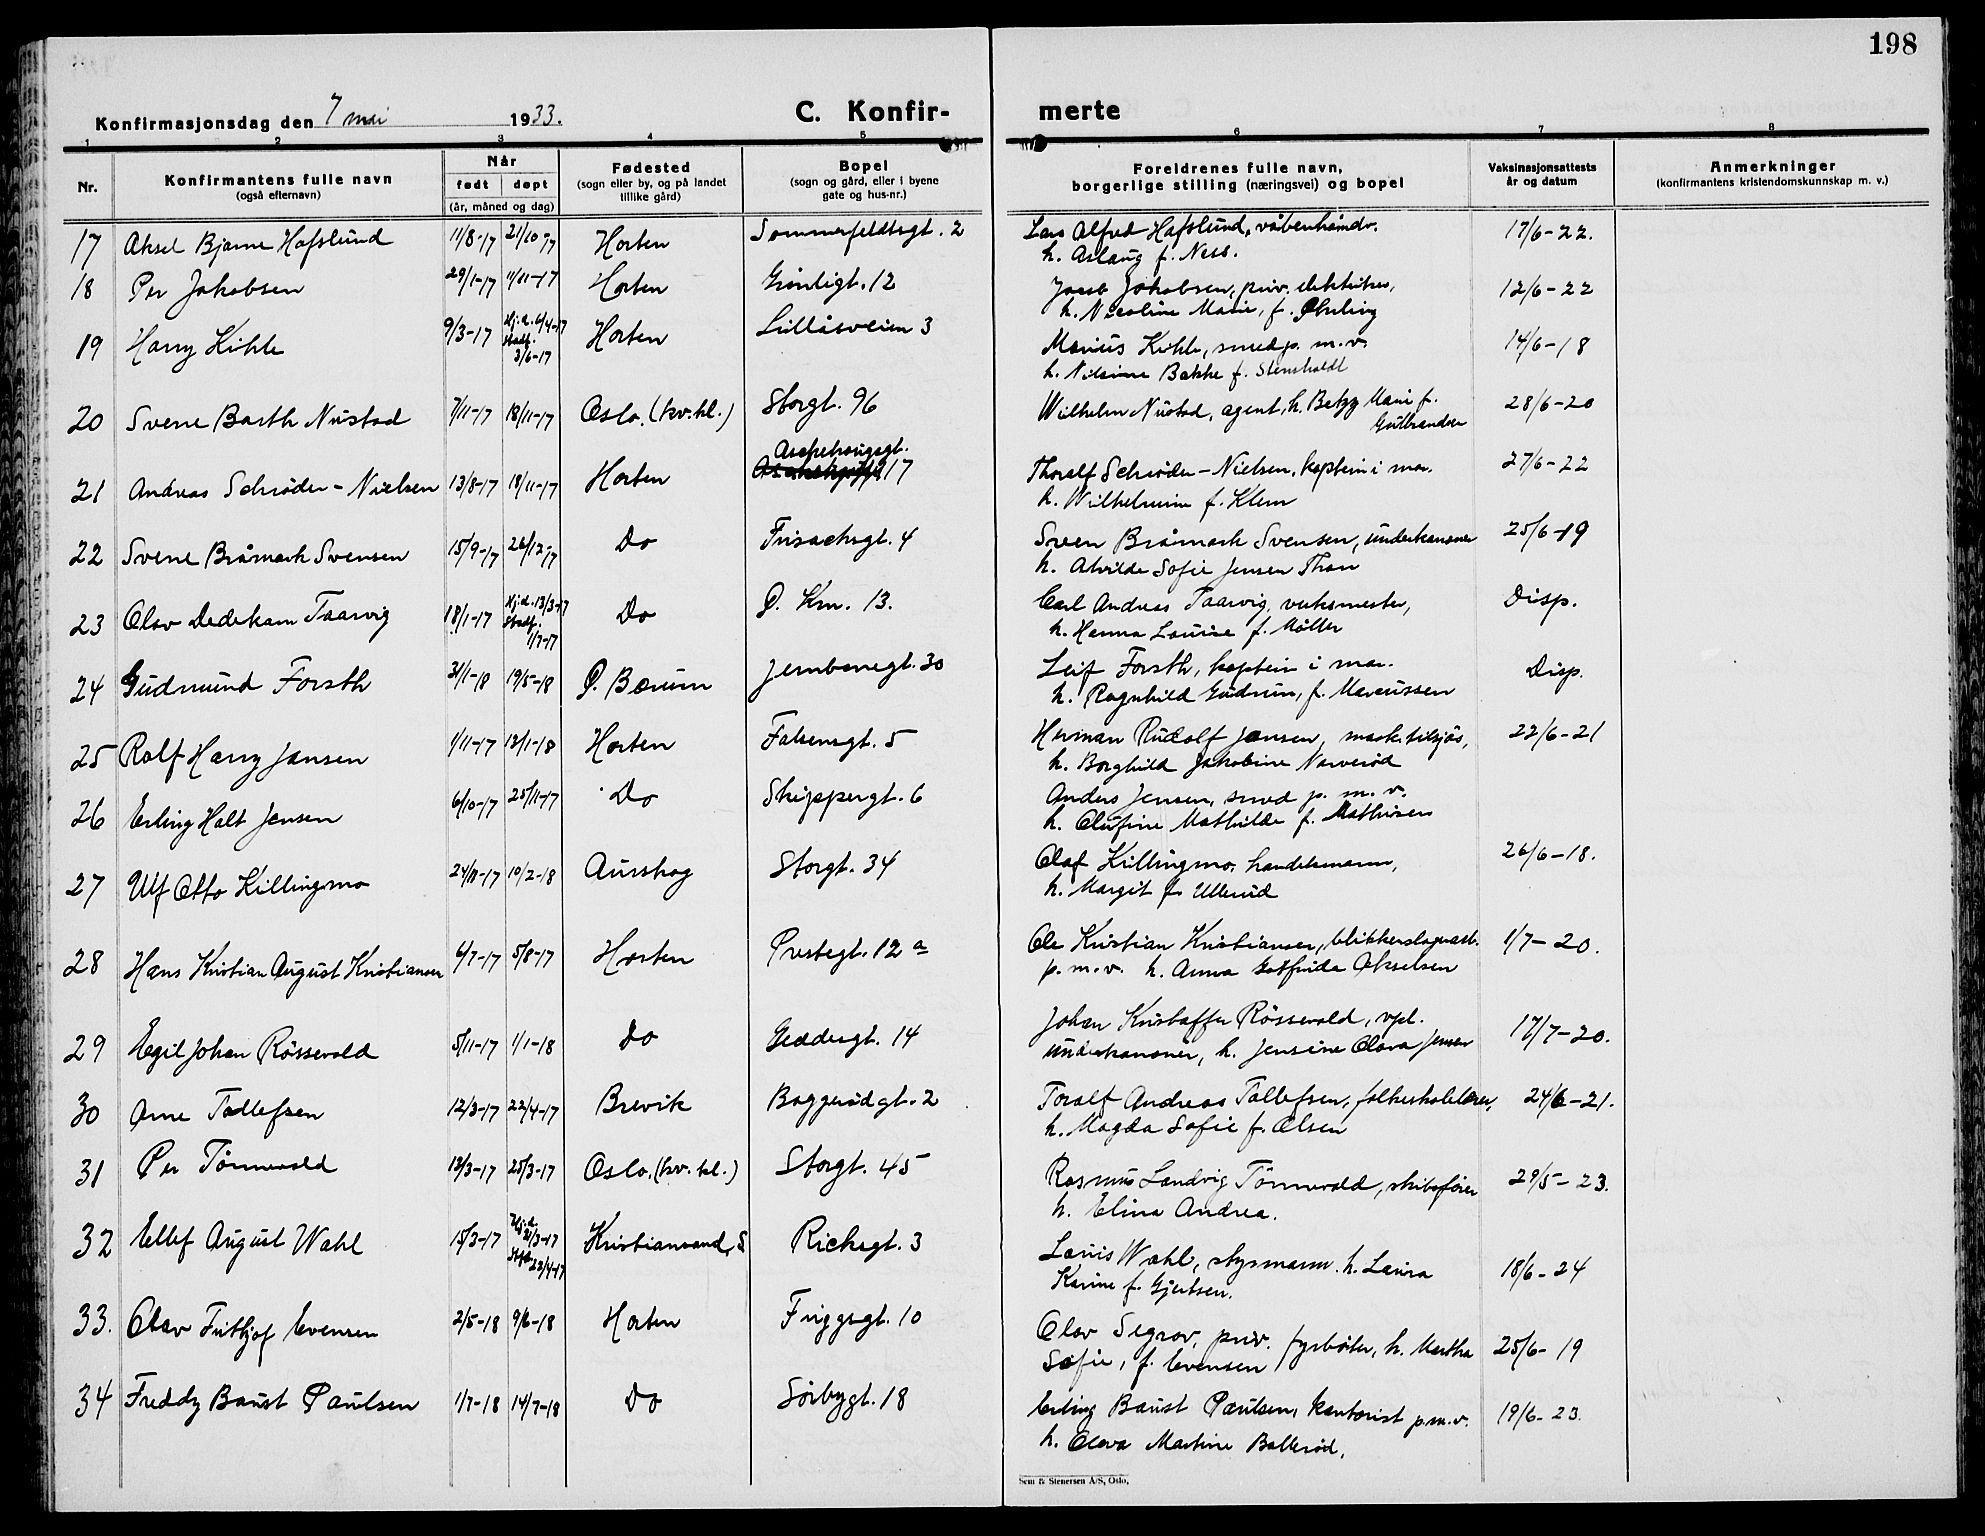 198
Konfirmasjonsdag den 7 mai 1933.
C. Konfir- merte
1 2 3 4 5 6 7 8
Nr.
Konfirmantens fulle navn
(også efternavn)
Når
født døpt
(år, måned og dag)
Fødested
(sogn eller by, og på landet
tillike gård)
Bopel
(sogn og gård, eller i byene
gate og hus-nr.)
Foreldrenes fulle navn,
borgerlige stilling (næringsvei) og bopel
Vaksinasjonsattests
år og datum
Anmerkninger
(konfirmantens kristendomskunnskap m. v.)
17 Aksel Bjarne Hafslund 11/8-17 21/10-17 Horten Sommerfeldtsgt. 2 Lars Alfred Hafslund, våbenhåndv. 17/6-22.
h. Aslaug f. Ness.
18 Per Jakobsen 29/1-17 11/11-17 Horten Grønligt. 12 Jacob Jakobsen, priv. elektriker, 12/6-22
h. Nicoline Marie, f.
19 Harry Kihle 9/3-17 Hj.d. 6/4-17 Horten Lillåsveien 3 Marius Kihle, smed p. m.v. 14/6-18
Stadf.
3/6-17
h. Bakke f. Stensholdt
20 Sverre Barth Nustad 7/11-17 18/11-17 Oslo. (kv.kl.) Storgt. 96 Wilhelm Nustad, agent, h. Betzy Marie f. 28/6-20
Gulbrandsen
21 Andreas Schrøder-Nielsen 13/8-17 18/11-17 Horten Apotekergt. 17 Thoralf Schrøder-Nielsen, kaptein i mar. 27/6-22
h. Wilhelmine f. Klem
22 Sverre Bråmark Svensen 15/9-17 26/12-17 Do Frisachsgt. 4 Sven Bråmark Svensen, underkanoner 25/6-19
h. Alvilde Sofie Jensen Thon
23 Olav Dedekam Taarvig 18/1-17 Hj.d. 13/3-17 Do Ø. Km. 13. Carl Andreas Taarvig, verksmester, Disp.
Stadf.
1/7-17
h. Hanna Louise f. Møller
24 Gudmund Forsth 31/1-18 19/5-18 Ø. Bærum Jernbanegt. 30 Leif Forsth, kaptein i mar. Disp.
h. Ragnhild Gudrun, f. Marcussen
25 Rolf Harry Jansen 1/11-17 13/1-18 Horten Falsensgt. 5 Herman Rudolf Jansen, mask.tilsjøs, 22/6-21
h. Borghild Jakobine Narverød
26 Erling Holt Jensen 6/10-17 25/11-17 Do Skippergt. 6 Anders Jensen, smed p. m. v.
h. Olufine Mathilde f. Mathisen
27 Ulf Otto Killingmo 24/11-17 10/2-18 Aurskog Storgt. 34 Olaf Killingmo, handelsmann, 26/6-18.
h. Margit f. Ullerud
28 Hans Kristian August Kristiansen 6/7-17 5/8-17 Horten Prestegt. 12 a Ole Kristian Kristiansen, blikkenslagerarb. 1/7-20.
p.m.v. h. Anna Gotfrida Akselsen
29 Egil Johan Røssevold 5/11-17 1/1-18 Do Geddesgt. 14 Johan Kristoffer Røssevold, vpl. 17/7-20.
underkanoner, h. Jensine Olava Jensen
30 Arne Tollefsen 12/3-17 22/4-17 Brevik Baggerødgt. 2 Toralf Andreas Tollefsen, folkeskolelærer, 24/6-21.
h. Magda Sofie f. Olsen
31 Per Tønnevold 12/3-17 25/3-17 Oslo. (kv. kl.) Storgt. 45 Rasmus Landvig Tønnevold, skibsfører 29/5-23.
h. Elina Andrea.
32 Ellef August Wahl 15/3-17 Hj.d. 21/3-17 Kristiansand, S Richsgt. 3 Louis Wahl, skysmann. h. Laura 18/6-24
Stadf. 22/4-17
Karine f. Gjertsen.
33. Olav Fritjof Evensen 2/5-18 9/6-18 Horten Friggsgt. 10 Olav Segrov, priv. fyrbøter, h. Martha 25/6-19
Sofie, f. Evensen
34 Freddy Baust Paulsen 1/7-18 14/7-18 Do Sørbygt. 18 Erling Baust Paulsen, kontorist p.m.v. 19/6-23.
h. Olava Martine Bollerød.
Sem & Stenersen A/S, Oslo.